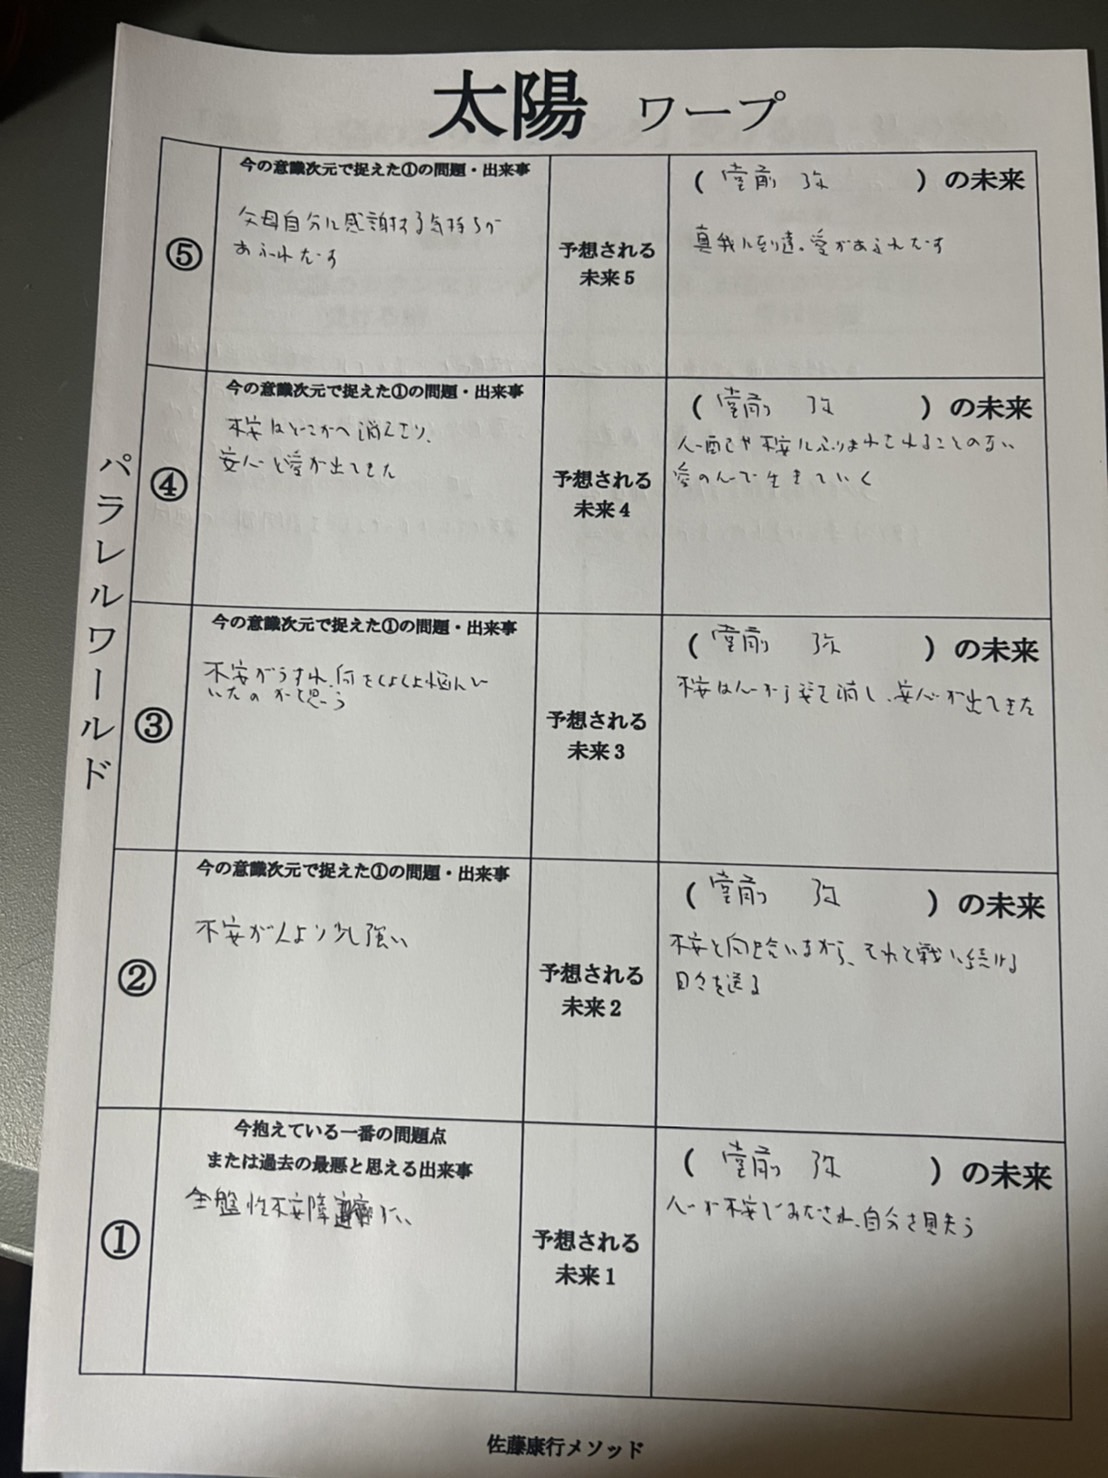 太陽 ワープ
パラレルワールド
⑤
今の意識次元で捉えた①の問題・出来事
父母自分に感謝する気持ちが
あふれだす
予想される
未来5
(堂前 弥)の未来
真我に到達。愛があふれだす
④
今の意識次元で捉えた①の問題・出来事
不安はどこかへ消えさり、
安心と愛が出てきた
予想される
未来4
(堂前 弥)の未来
心配や不安にふりまわされることのない
愛の心で生きていく
③
今の意識次元で捉えた①の問題・出来事
不安がうすれ、何をくよくよ悩んで
いたのかと思う
予想される
未来3
(堂前 弥)の未来
不安は心から姿を消し、安心が出てきた
②
今の意識次元で捉えた①の問題・出来事
不安が人より少し強い
予想される
未来2
(堂前 弥)の未来
不安と向き合いながら、それと戦い続ける
日々を送る
①
今抱えている一番の問題点
または過去の最悪と思える出来事
全盤性不安障
予想される
未来1
(堂前 弥)の未来
心が不安でみたされ、自分を見失う
佐藤康行メソッド